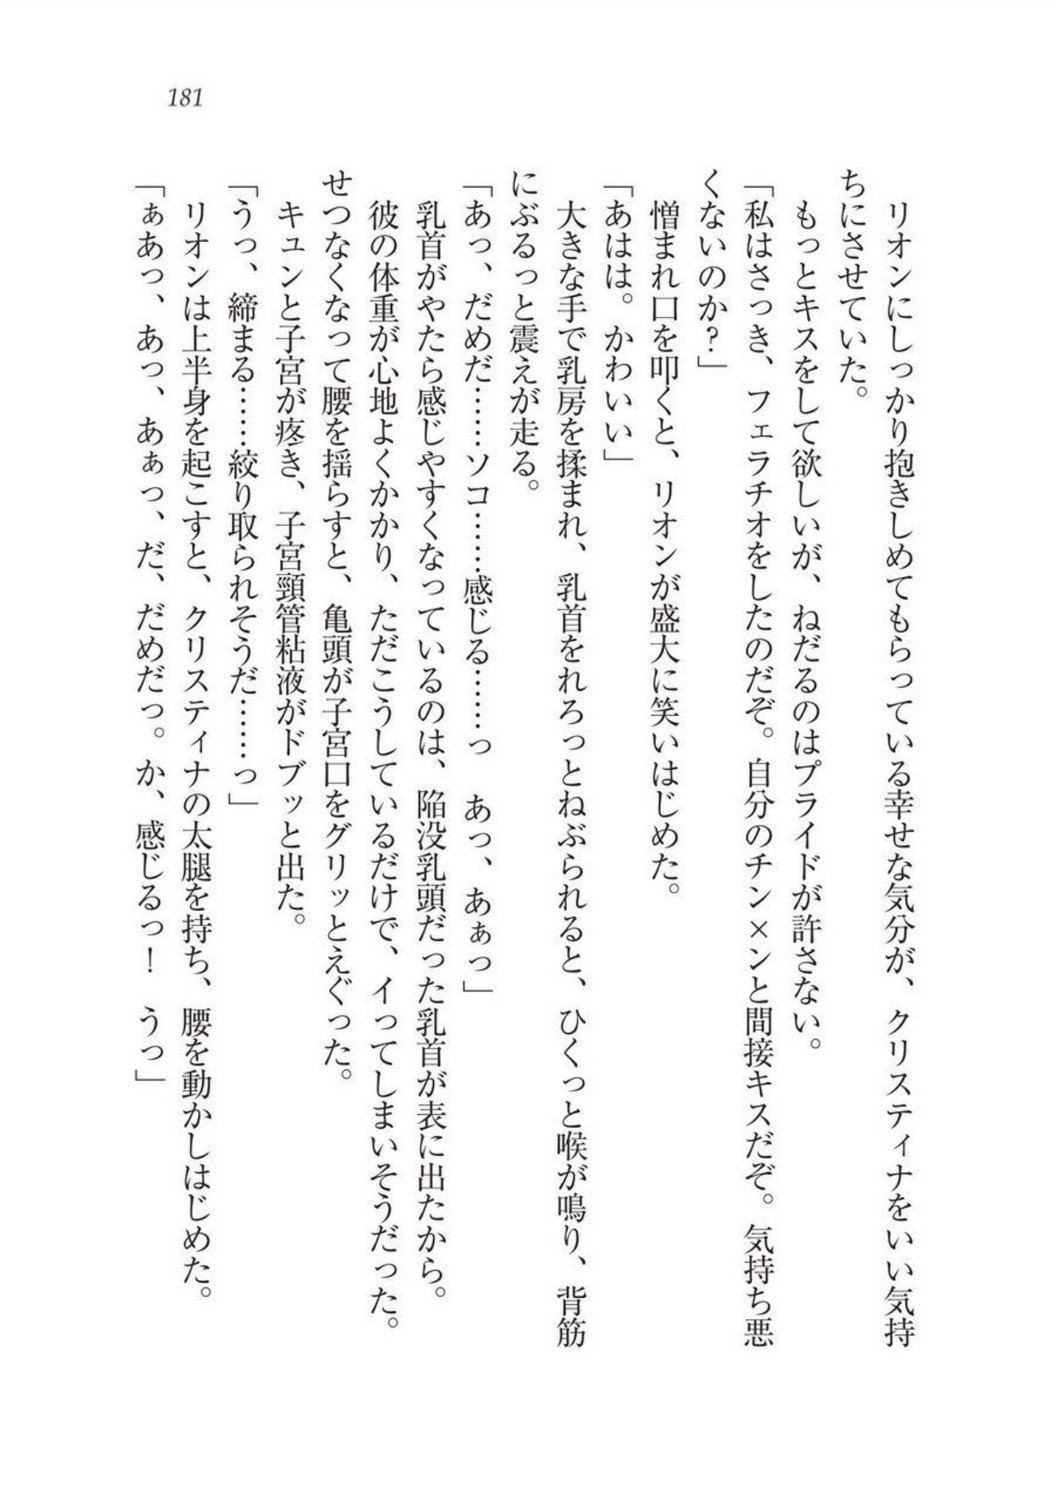 181
リオンにしっかり抱きしめてもらっている幸せな気分が、クリスティナをいい気持
ちにさせていた。
もっとキスをして欲しいが、ねだるのはプライドが許さない。
「私はさっき、フェラチオをしたのだぞ。自分のチン×ンと間接キスだぞ。気持ち悪
くないのか？」
憎まれ口を叩くと、リオンが盛大に笑いはじめた。
「あはは。かわいい」
大きな手で乳房を揉まれ、乳首をれろっとねぶられると、ひくっと喉が鳴り、背筋
にぶるっと震えが走る。
「あっ、だめだ……ソコ……感じる……っ　あっ、あぁっ」
乳首がやたら感じやすくなっているのは、陥没乳頭だった乳首が表に出たから。
彼の体重が心地よくかかり、ただこうしているだけで、イってしまいそうだった。
せつなくなって腰を揺らすと、亀頭が子宮口をグリッとえぐった。
キュンと子宮が疼き、子宮頸管粘液がドブッと出た。
「うっ、締まる……絞り取られそうだ……っ」
リオンは上半身を起こすと、クリスティナの太腿を持ち、腰を動かしはじめた。
「ぁあっ、あっ、あぁっ、だ、だめだっ。か、感じるっ！　うっ」